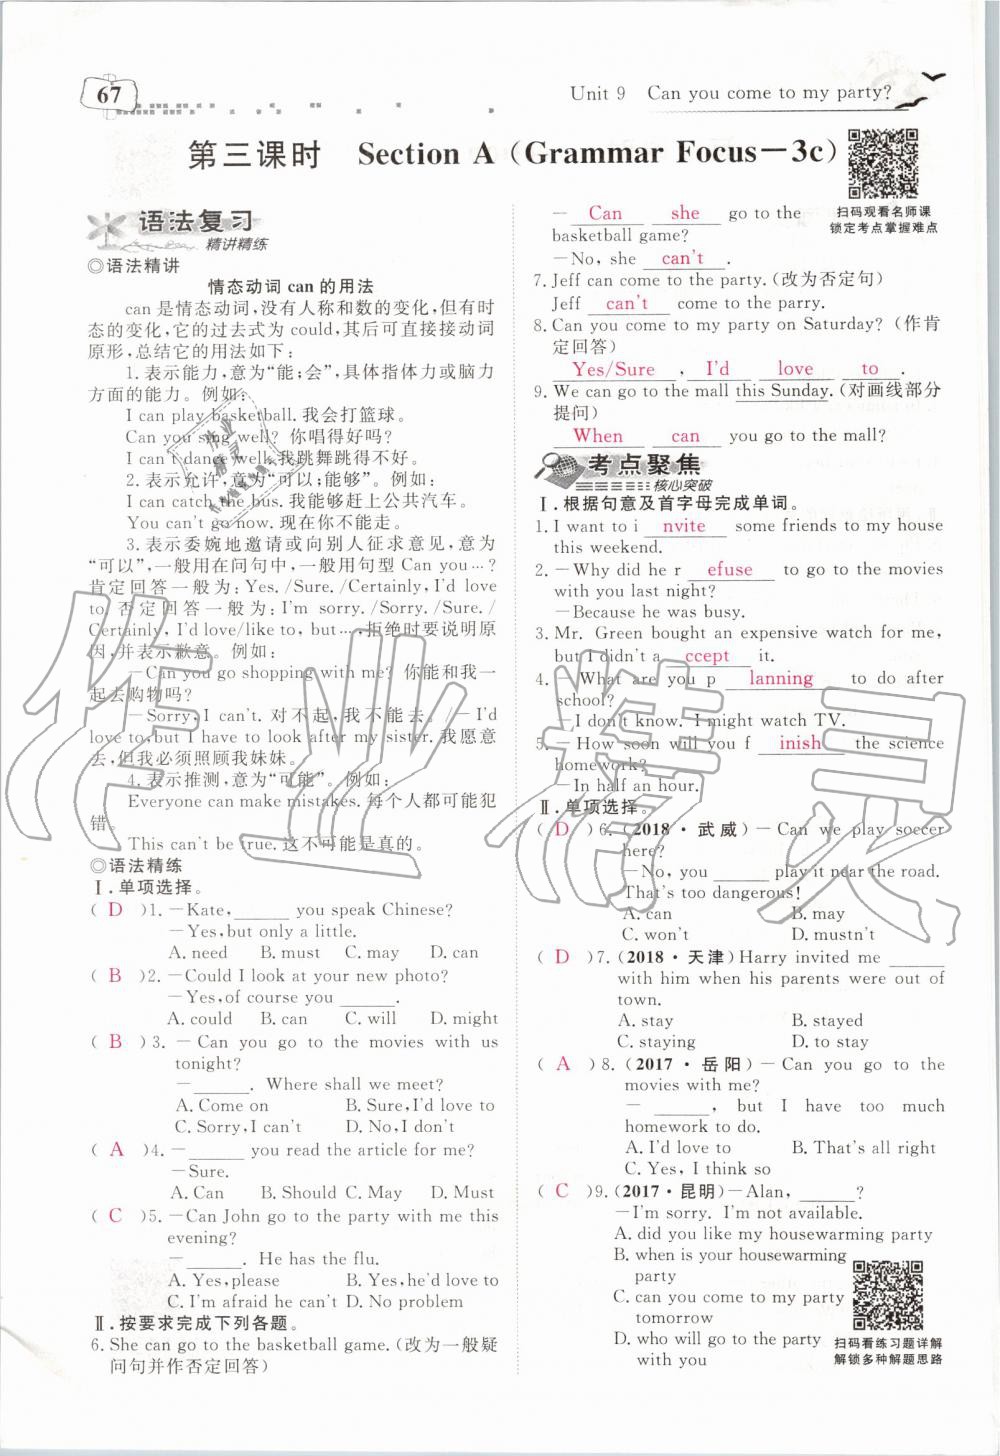 67
Unit 9 Can you come to my party?
第三课时 Section A (Grammar Focus－3c)
扫码观看名师课
锁定考点掌握难点
语法复习
精讲精练
◎语法精讲
情态动词 can 的用法
can 是情态动词,没有人称和数的变化,但有时
态的变化,它的过去式为 could,其后可直接接动词
原形,总结它的用法如下:
1. 表示能力,意为“能;会”,具体指体力或脑力
方面的能力。例如:
I can play basketball. 我会打篮球。
Can you sing well? 你唱得好吗?
I can't dance well. 我跳舞跳得不好。
2. 表示允许,意为“可以;能够”。例如:
I can catch the bus. 我能够赶上公共汽车。
You can't go now. 现在你不能走。
3. 表示委婉地邀请或向别人征求意见,意为
“可以”,一般用在问句中,一般用句型 Can you…?
肯定回答一般为: Yes. /Sure. /Certainly, I'd love
to. 否定回答一般为: I'm sorry. /Sorry. /Sure. /
Certainly, I'd love/like to, but…,拒绝时要说明原
因,并表示歉意。例如:
－Can you go shopping with me? 你能和我一
起去购物吗?
－Sorry, I can't. 对不起,我不能去。/－I'd
love to, but I have to look after my sister. 我愿意
去,但我必须照顾我妹妹。
4. 表示推测,意为“可能”。例如:
Everyone can make mistakes. 每个人都可能犯
错。
This can't be true. 这不可能是真的。
◎语法精练
Ⅰ. 单项选择。
( D )1. －Kate, ______ you speak Chinese?
－Yes, but only a little.
A. need B. must C. may D. can
( B )2. －Could I look at your new photo?
－Yes, of course you ______.
A. could B. can C. will D. might
( B )3. －Can you go to the movies with us
tonight?
－______. Where shall we meet?
A. Come on B. Sure, I'd love to
C. Sorry, I can't D. No, I don't
( A )4. －______ you read the article for me?
－Sure.
A. Can B. Should C. May D. Must
( C )5. －Can John go to the party with me this
evening?
－______. He has the flu.
A. Yes, please B. Yes, he'd love to
C. I'm afraid he can't D. No problem
Ⅱ. 按要求完成下列各题。
6. She can go to the basketball game. (改为一般疑
问句并作否定回答)
－ Can she go to the
basketball game?
－No, she can't .
7. Jeff can come to the party. (改为否定句)
Jeff can't come to the parry.
8. Can you come to my party on Saturday? (作肯
定回答)
Yes/Sure , I'd love to .
9. We can go to the mall this Sunday. (对画线部分
提问)
When can you go to the mall?
考点聚焦
核心突破
Ⅰ. 根据句意及首字母完成单词。
1. I want to i nvite some friends to my house
this weekend.
2. －Why did he r efuse to go to the movies
with you last night?
－Because he was busy.
3. Mr. Green bought an expensive watch for me,
but I didn't a ccept it.
4. －What are you p lanning to do after
school?
－I don't know. I might watch TV.
5. －How soon will you f inish the science
homework?
－In half an hour.
Ⅱ. 单项选择。
( D )6. (2018·武威)－Can we play soccer
here?
－No, you ______ play it near the road.
That's too dangerous!
A. can B. may
C. won't D. mustn't
( D )7. (2018·天津)Harry invited me ______
with him when his parents were out of
town.
A. stay B. stayed
C. staying D. to stay
( A )8. (2017·岳阳)－Can you go to the
movies with me?
－ ______, but I have too much
homework to do.
A. I'd love to B. That's all right
C. Yes, I think so
( C )9. (2017·昆明)－Alan, ______?
－I'm sorry. I'm not available.
A. did you like my housewarming party
B. when is your housewarming
party
C. can you come to my party
tomorrow
D. who will go to the party
with you
扫码看练习题详解
解锁多种解题思路
作业精灵